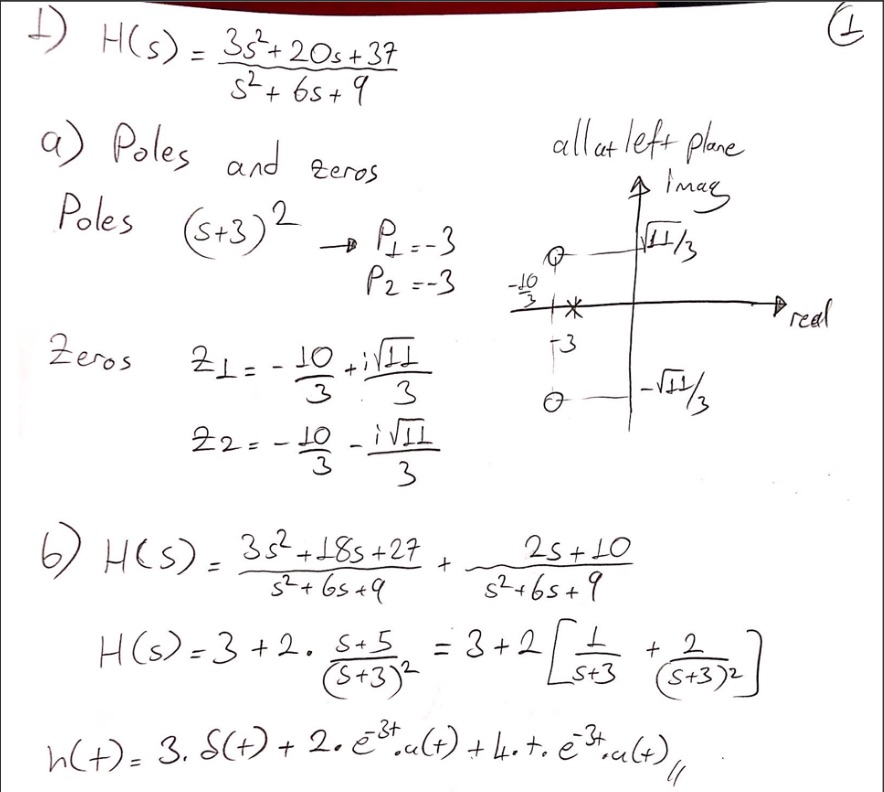 1) H(s) = (3s²+20s+37)/(s²+6s+9)
①
a) Poles and zeros
Poles (s+3)² → P1=-3
P2=-3
Zeros Z1=-10/3+i√11/3
Z2=-10/3-i√11/3
all at left plane
imag
√11/3
-10/3
real
-3
-√11/3
b) H(s) = (3s²+18s+27)/(s²+6s+9) + (2s+10)/(s²+6s+9)
H(s)=3+2.(s+5)/(s+3)² = 3+2[1/(s+3) + 2/(s+3)²]
h(t)=3.δ(t)+2.e^-3t.u(t)+4.t.e^-3t.u(t)//